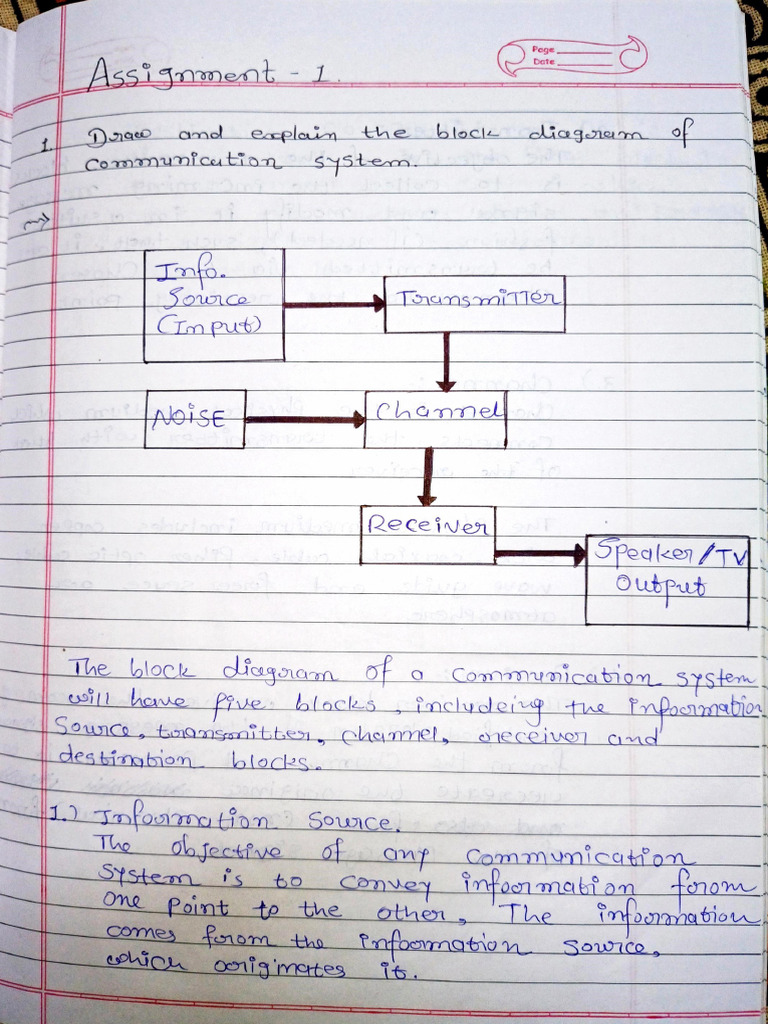 Page
Date
Assignment - 1.
1. Draw and explain the block diagram of
communication system.
Info.
Source
(Input)
Transmitter
NOISE
Channel
Receiver
Speaker/TV
Output
The block diagram of a communication system
will have five blocks, includeing the information
Source, transmitter, channel, receiver and
destination blocks.
1.) Information Source.
The objective of any communication
system is to convey information from
one point to the other, The information
comes from the information source,
which originates it.